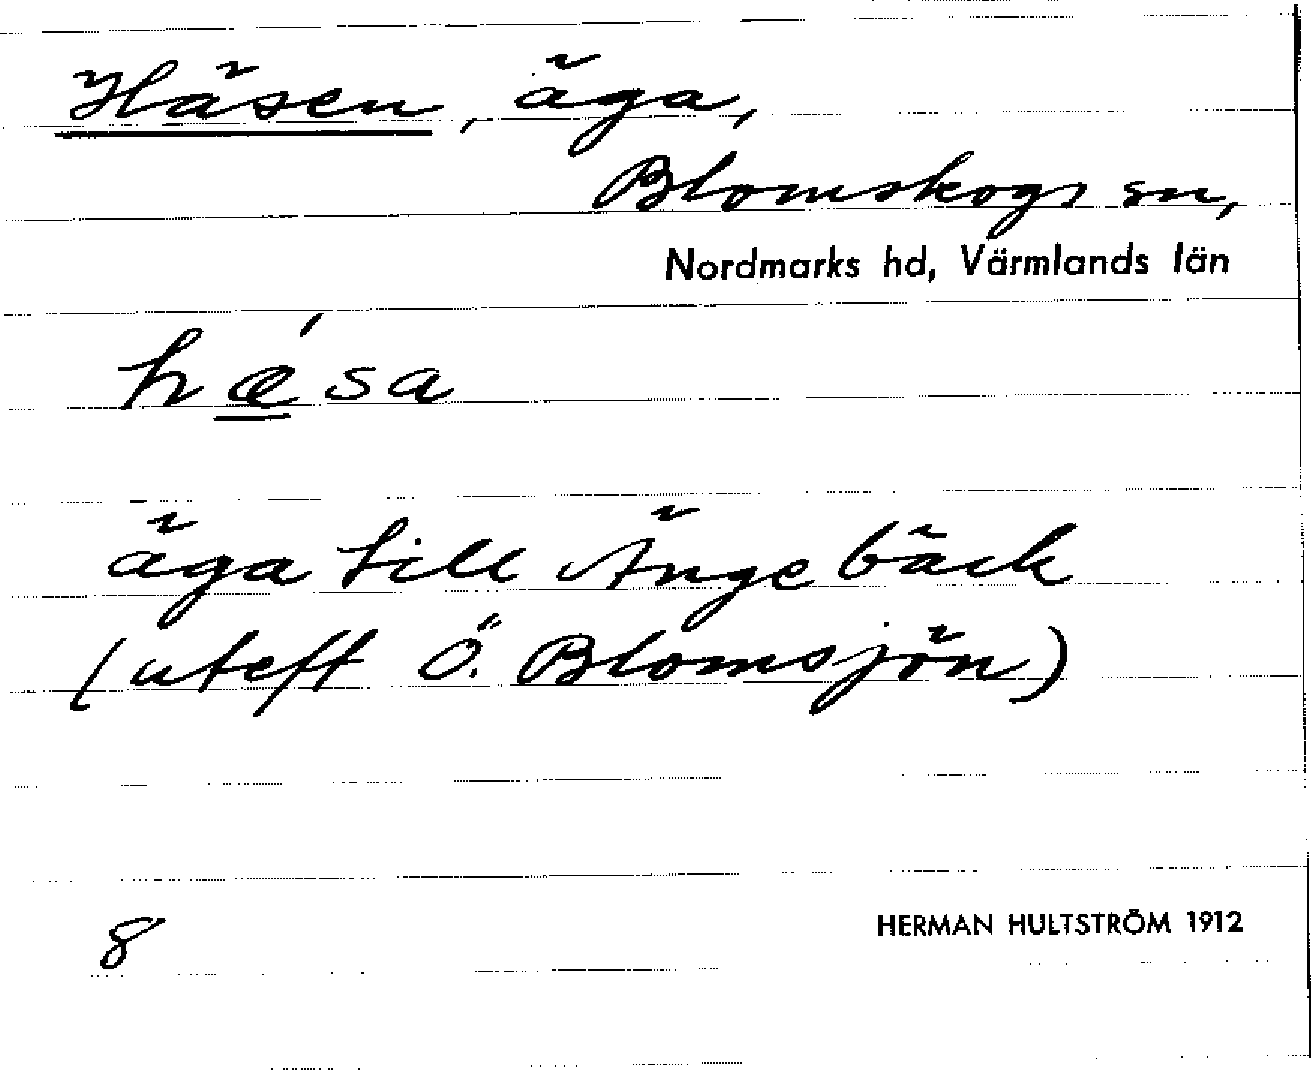 Häsen, äga,
Blomskogs sn,
Nordmarks hd, Värmlands län
hæ´sa
äga till Ängebäck
(uteft Ö. Blomsjön)
8
HERMAN HULTSTRÖM 1912